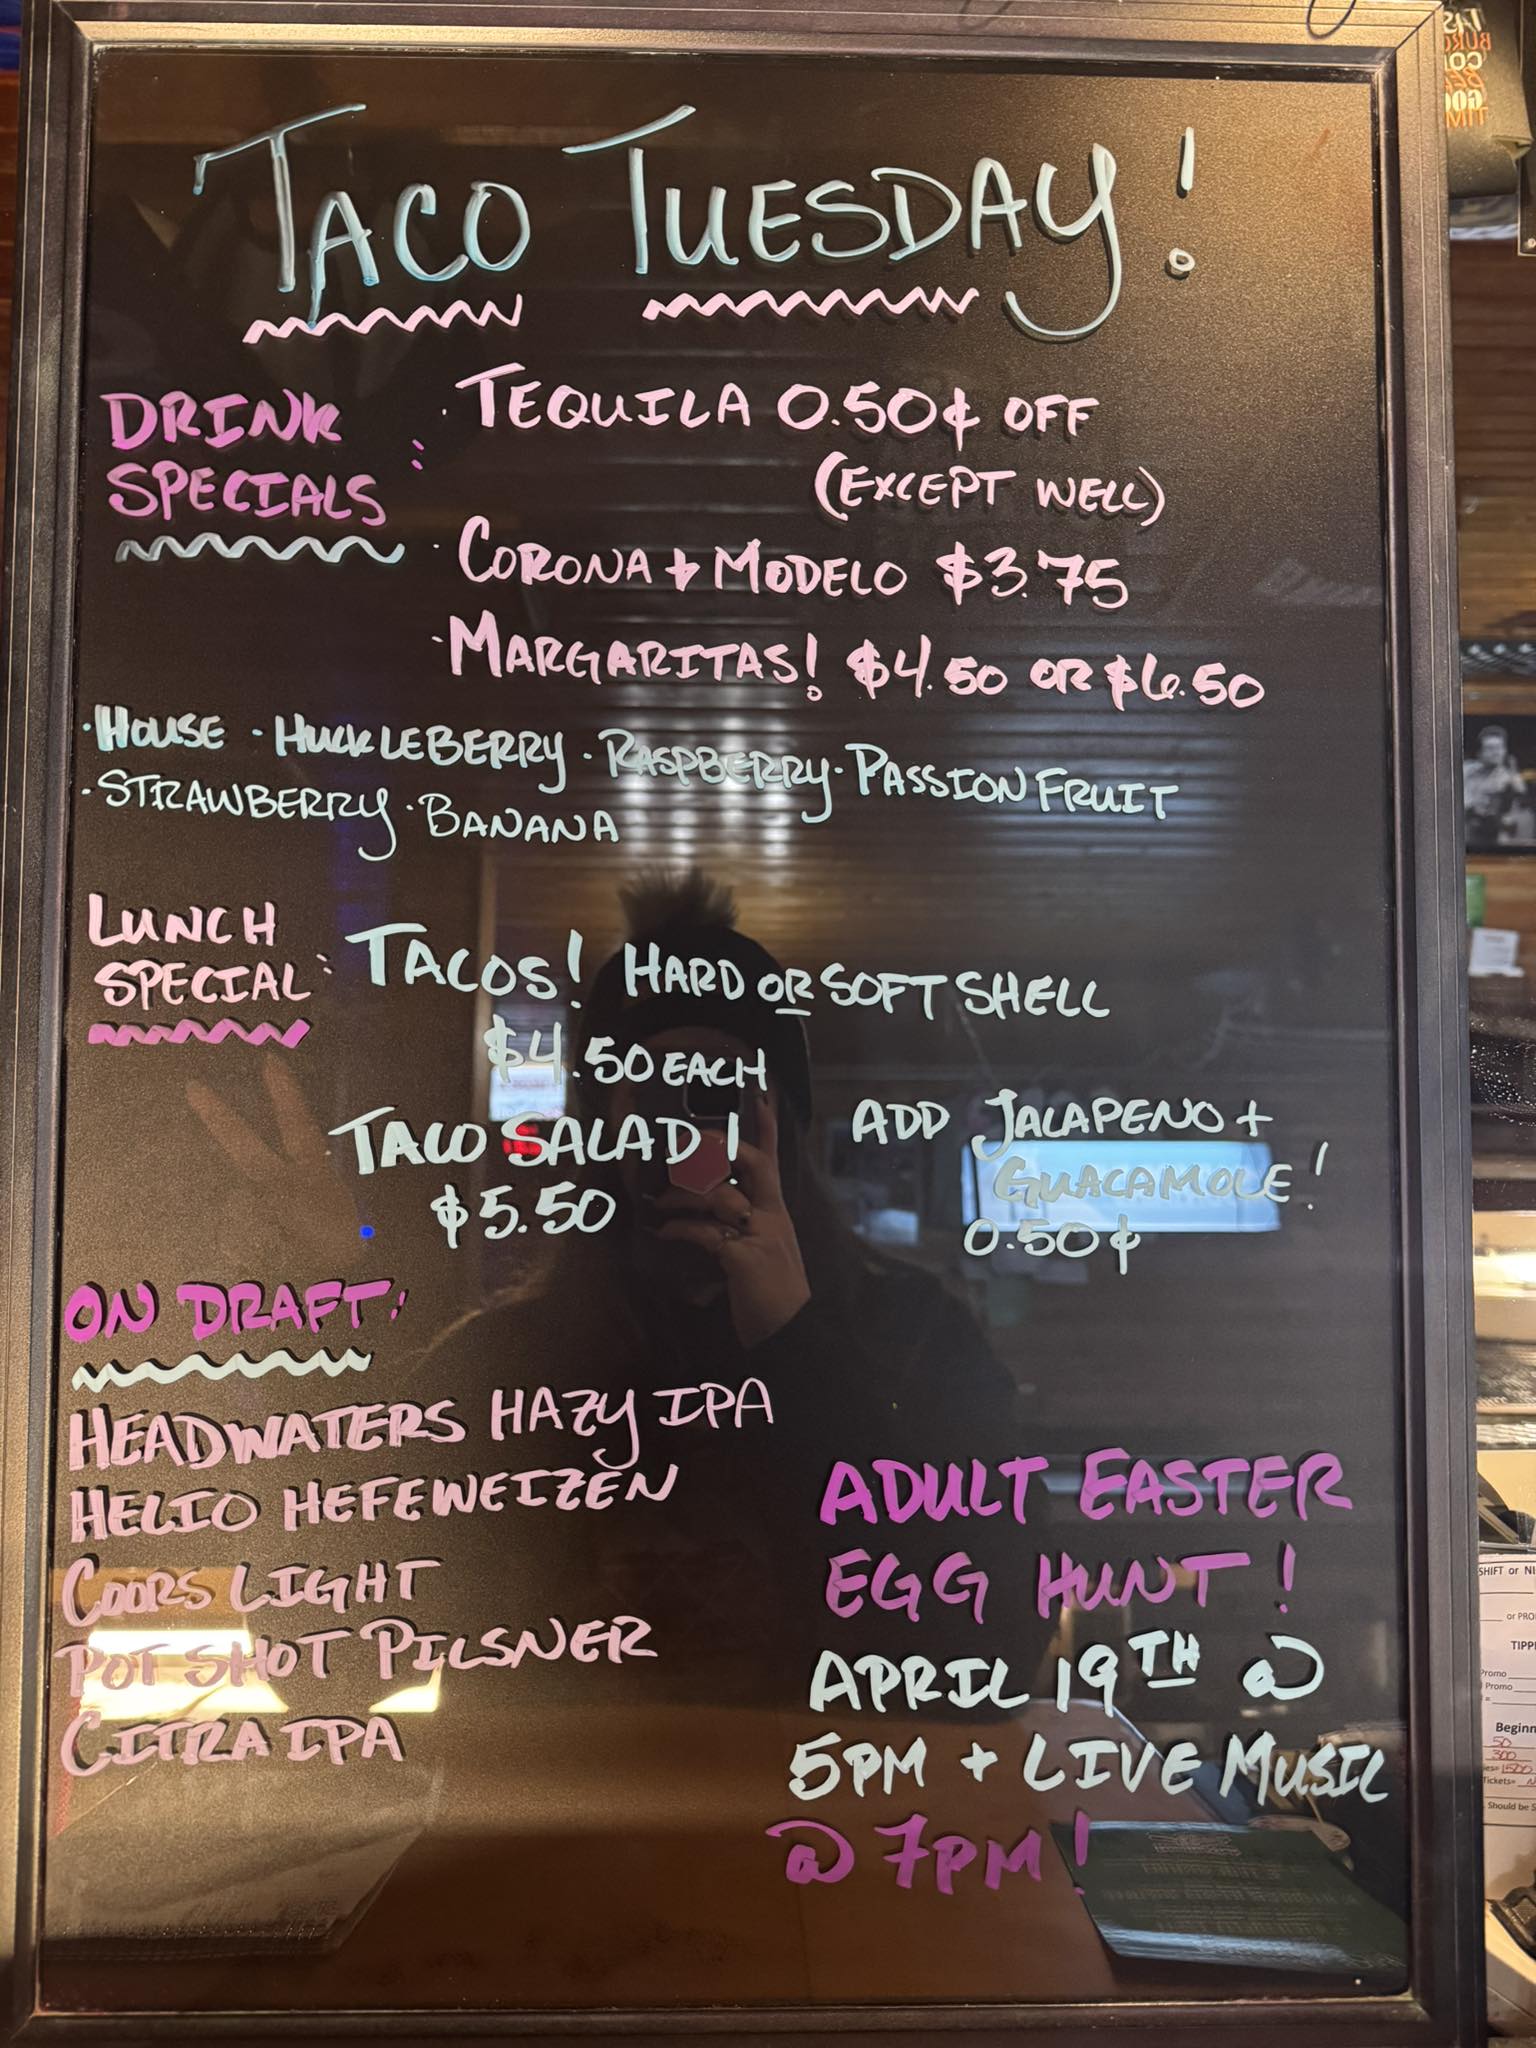 TACO TUESDAY!
DRINK SPECIALS:
· TEQUILA 0.50¢ OFF
(EXCEPT WELL)
· CORONA + MODELO $3.75
· MARGARITAS! $4.50 OR $6.50
· HOUSE · HUCKLEBERRY · RASPBERRY · PASSION FRUIT
· STRAWBERRY · BANANA
LUNCH SPECIAL:
TACOS! HARD OR SOFT SHELL
$4.50 EACH
TACO SALAD!
$5.50
ADD JALAPENO +
GUACAMOLE!
0.50¢
ON DRAFT:
HEADWATERS HAZY IPA
HELIO HEFEWEIZEN
COORS LIGHT
POT SHOT PILSNER
CITRA IPA
ADULT EASTER
EGG HUNT!
APRIL 19TH @
5PM + LIVE MUSIC
@ 7PM!
SHIFT or
or
Promo
Promo
50
300
1500
Should be